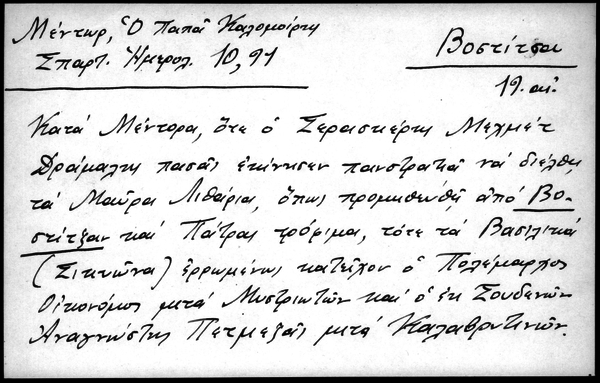 Μέντωρ, Ὁ Παπᾶ Καλομοίρης
Σπαρτ. Ἡμερολ. 10, 91
Βοστίτσα
19. αἰ.
Κατά Μέντορα, ὅτε ὁ Σερασκέρης Μεχμέτ
Δράμαλης πασᾶς ἐκίνησεν πανστρατιᾷ νά διέλθῃ
τά Μαῦρα Λιθάρια, ὅπως προμηθευθῇ ἀπό Βο-
στίτζαν καί Πάτρας τρόφιμα, τότε τά Βασιλικά
(Σικυῶνα) ἐρρωμένως κατεῖχον ὁ Πολέμαρχος
Οἰκονόμος μετά Μυστριωτῶν καί ὁ ἐκ Σουδενῶν
Ἀναγνώστης Πετμεζᾶς μετά Καλαβρυτινῶν.